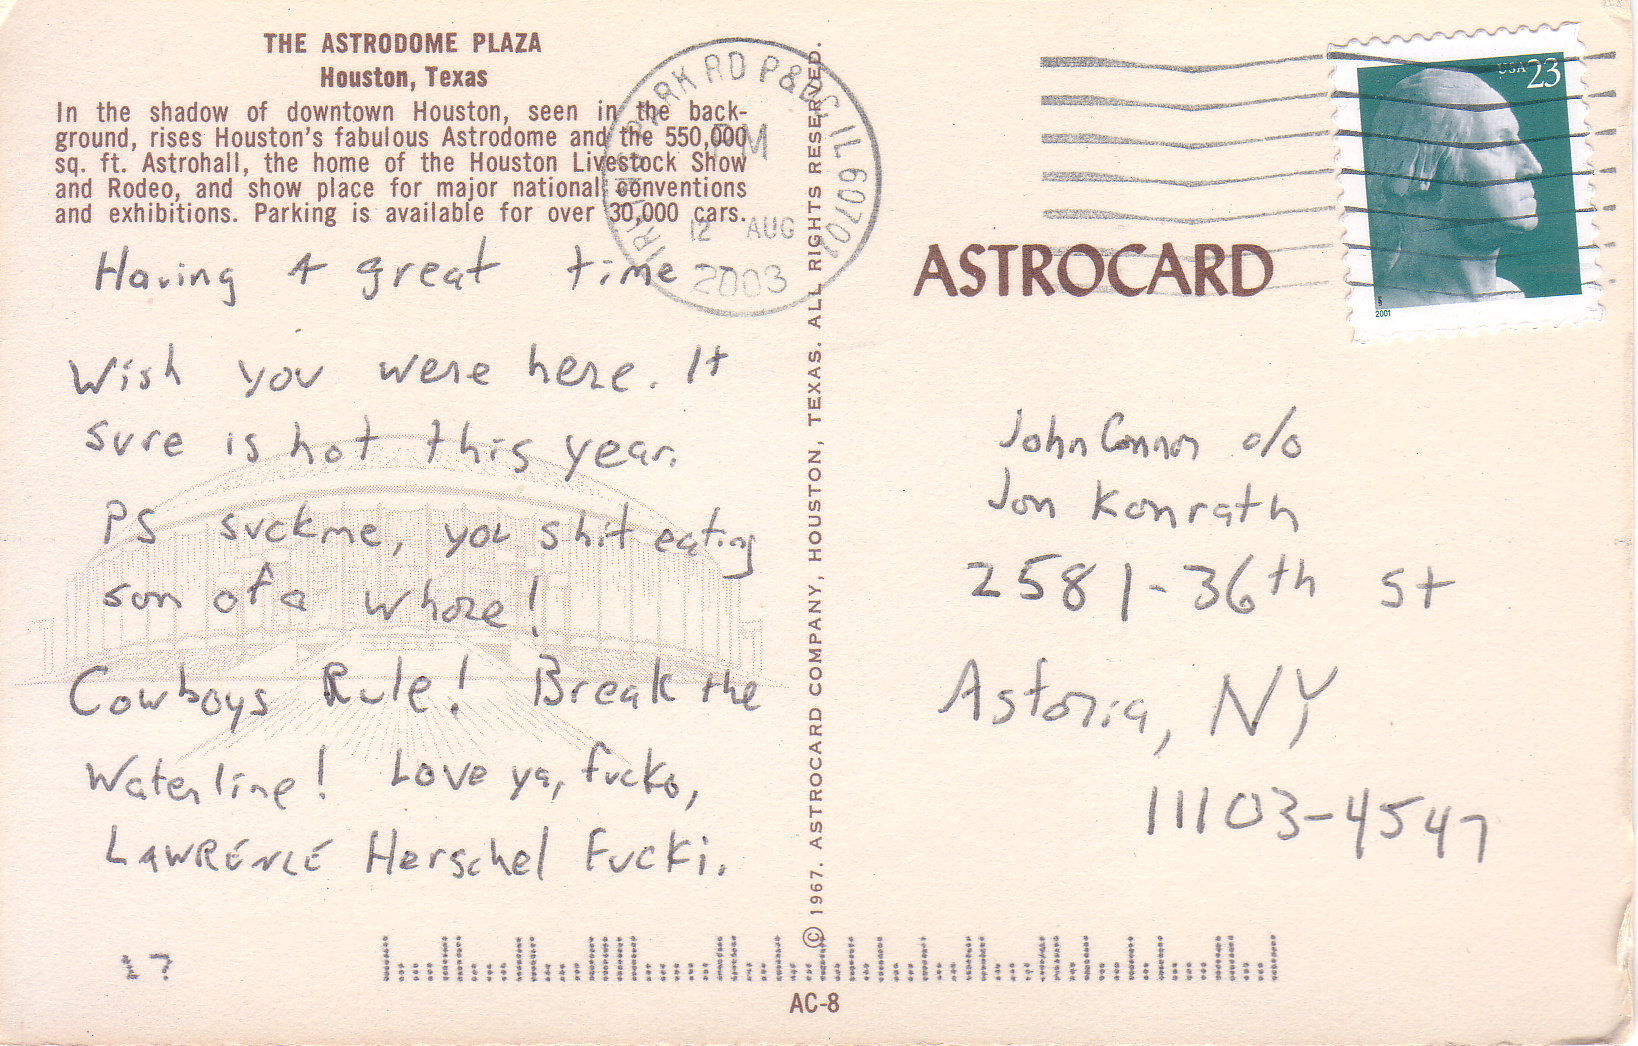 THE ASTRODOME PLAZA
Houston, Texas
In the shadow of downtown Houston, seen in the back-
ground, rises Houston's fabulous Astrodome and the 550,000
sq. ft. Astrohall, the home of the Houston Livestock Show
and Rodeo, and show place for major national conventions
and exhibitions. Parking is available for over 30,000 cars.
Having A great time -
Wish you were here. It
sure is hot this year.
PS suckme, you shit eating
son of a whore!
Cowboys Rule! Break the
Waterline! Love ya, fucko,
LAWRENCE Herschel Fucki.
17
© 1967. ASTROCARD COMPANY, HOUSTON, TEXAS. ALL RIGHTS RESERVED.
PARK RD P&DC IL 60701
PM
12 AUG
2003
USA 23
2001
ASTROCARD
John Connor c/o
Jon Konrath
2581-36th St
Astoria, NY
11103-4547
AC-8